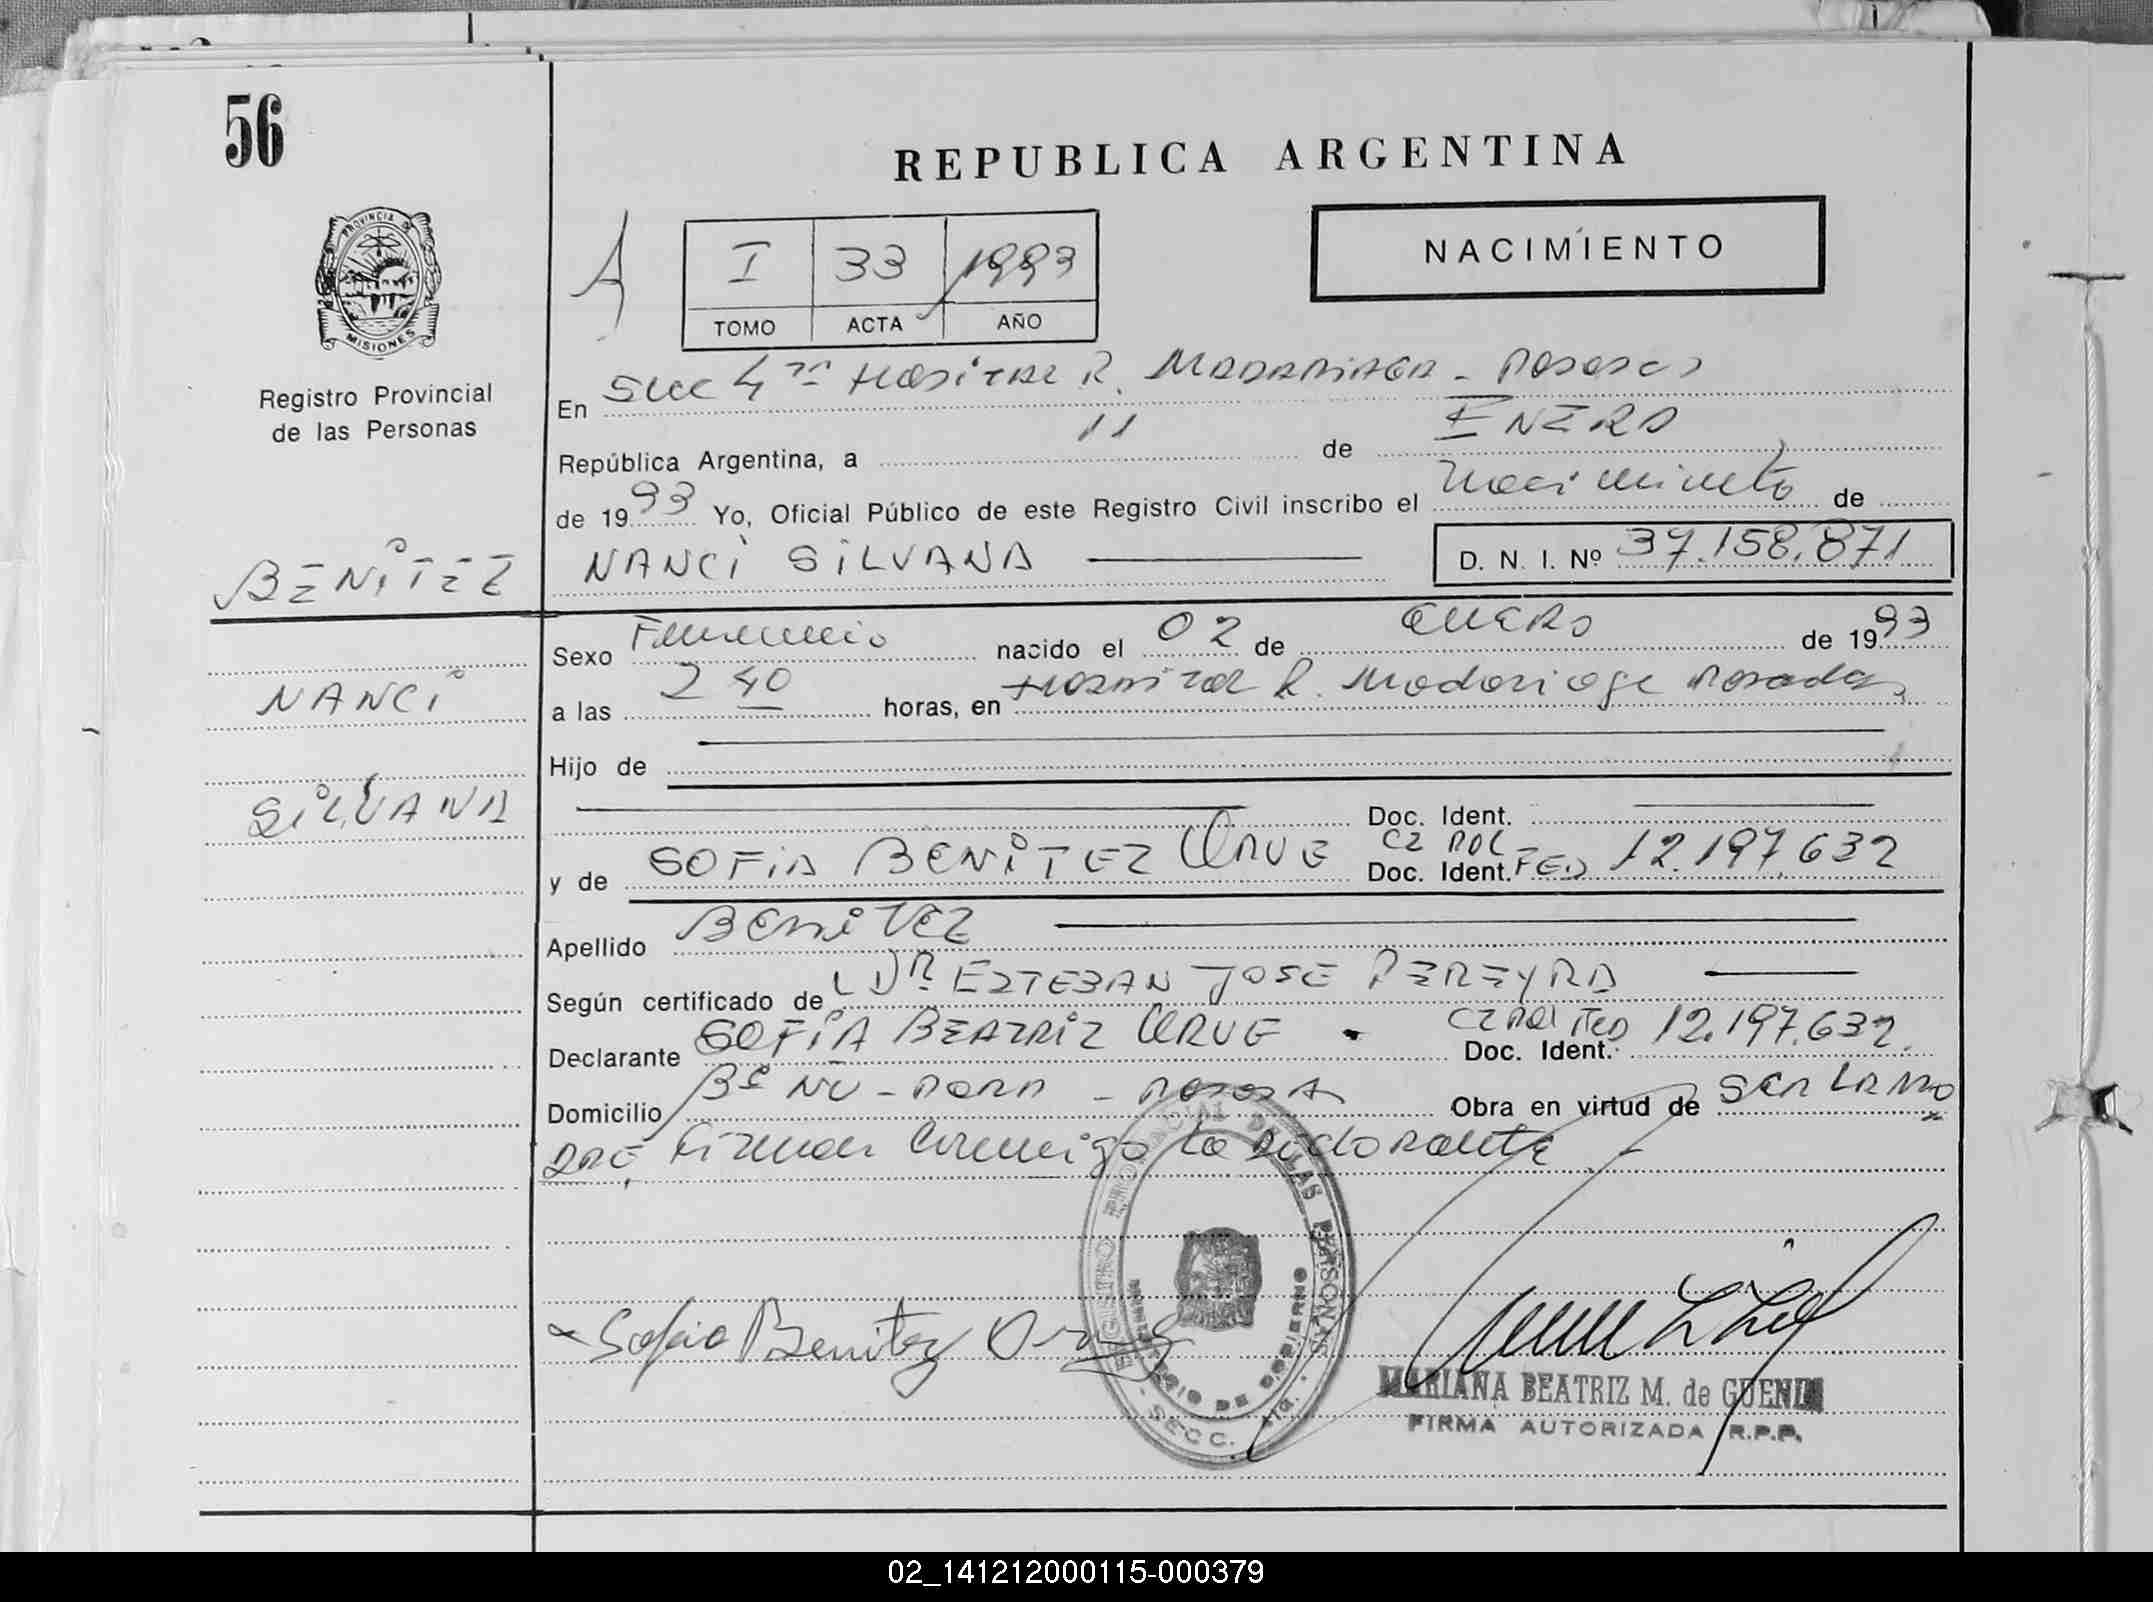 56
REPUBLICA ARGENTINA
PROVINCIA DE
MISIONES
Registro Provincial
de las Personas
A
I 33 1993
TOMO ACTA AÑO
NACIMIENTO
En Succ 4ta Hospital R. Madariaga - Posadas
República Argentina, a 11 de ENERO
de 1993 Yo, Oficial Público de este Registro Civil inscribo el nacimiento de
BENITEZ
NANCI SILVANA D. N. I. Nº 37.158.871
Sexo Femenino nacido el 02 de enero de 1993
NANCI
a las 2 40 horas, en Hospital R. Madariaga Posadas
Hijo de
SILVANA
Doc. Ident.
y de SOFIA BENITEZ ORUE CI POL FED Doc. Ident. 12.197.632
Apellido BENITEZ
Según certificado de Dr. ESTEBAN JOSE PEREYRA
Declarante SOFIA BEATRIZ ORUE CI Pol Fed Doc. Ident. 12.197.632
Domicilio Bº ÑU-PORA - Obra en virtud de SER LA MA
DRE, Firman conmigo la declarante
REGISTRO PROVINCIAL DE LAS PERSONAS
MINISTERIO DE GOBIERNO
SECC. 4ta.
Sofia Benitez Orue
MARIANA BEATRIZ M. de
FIRMA AUTORIZADA R.P.P.
02_141212000115-000379